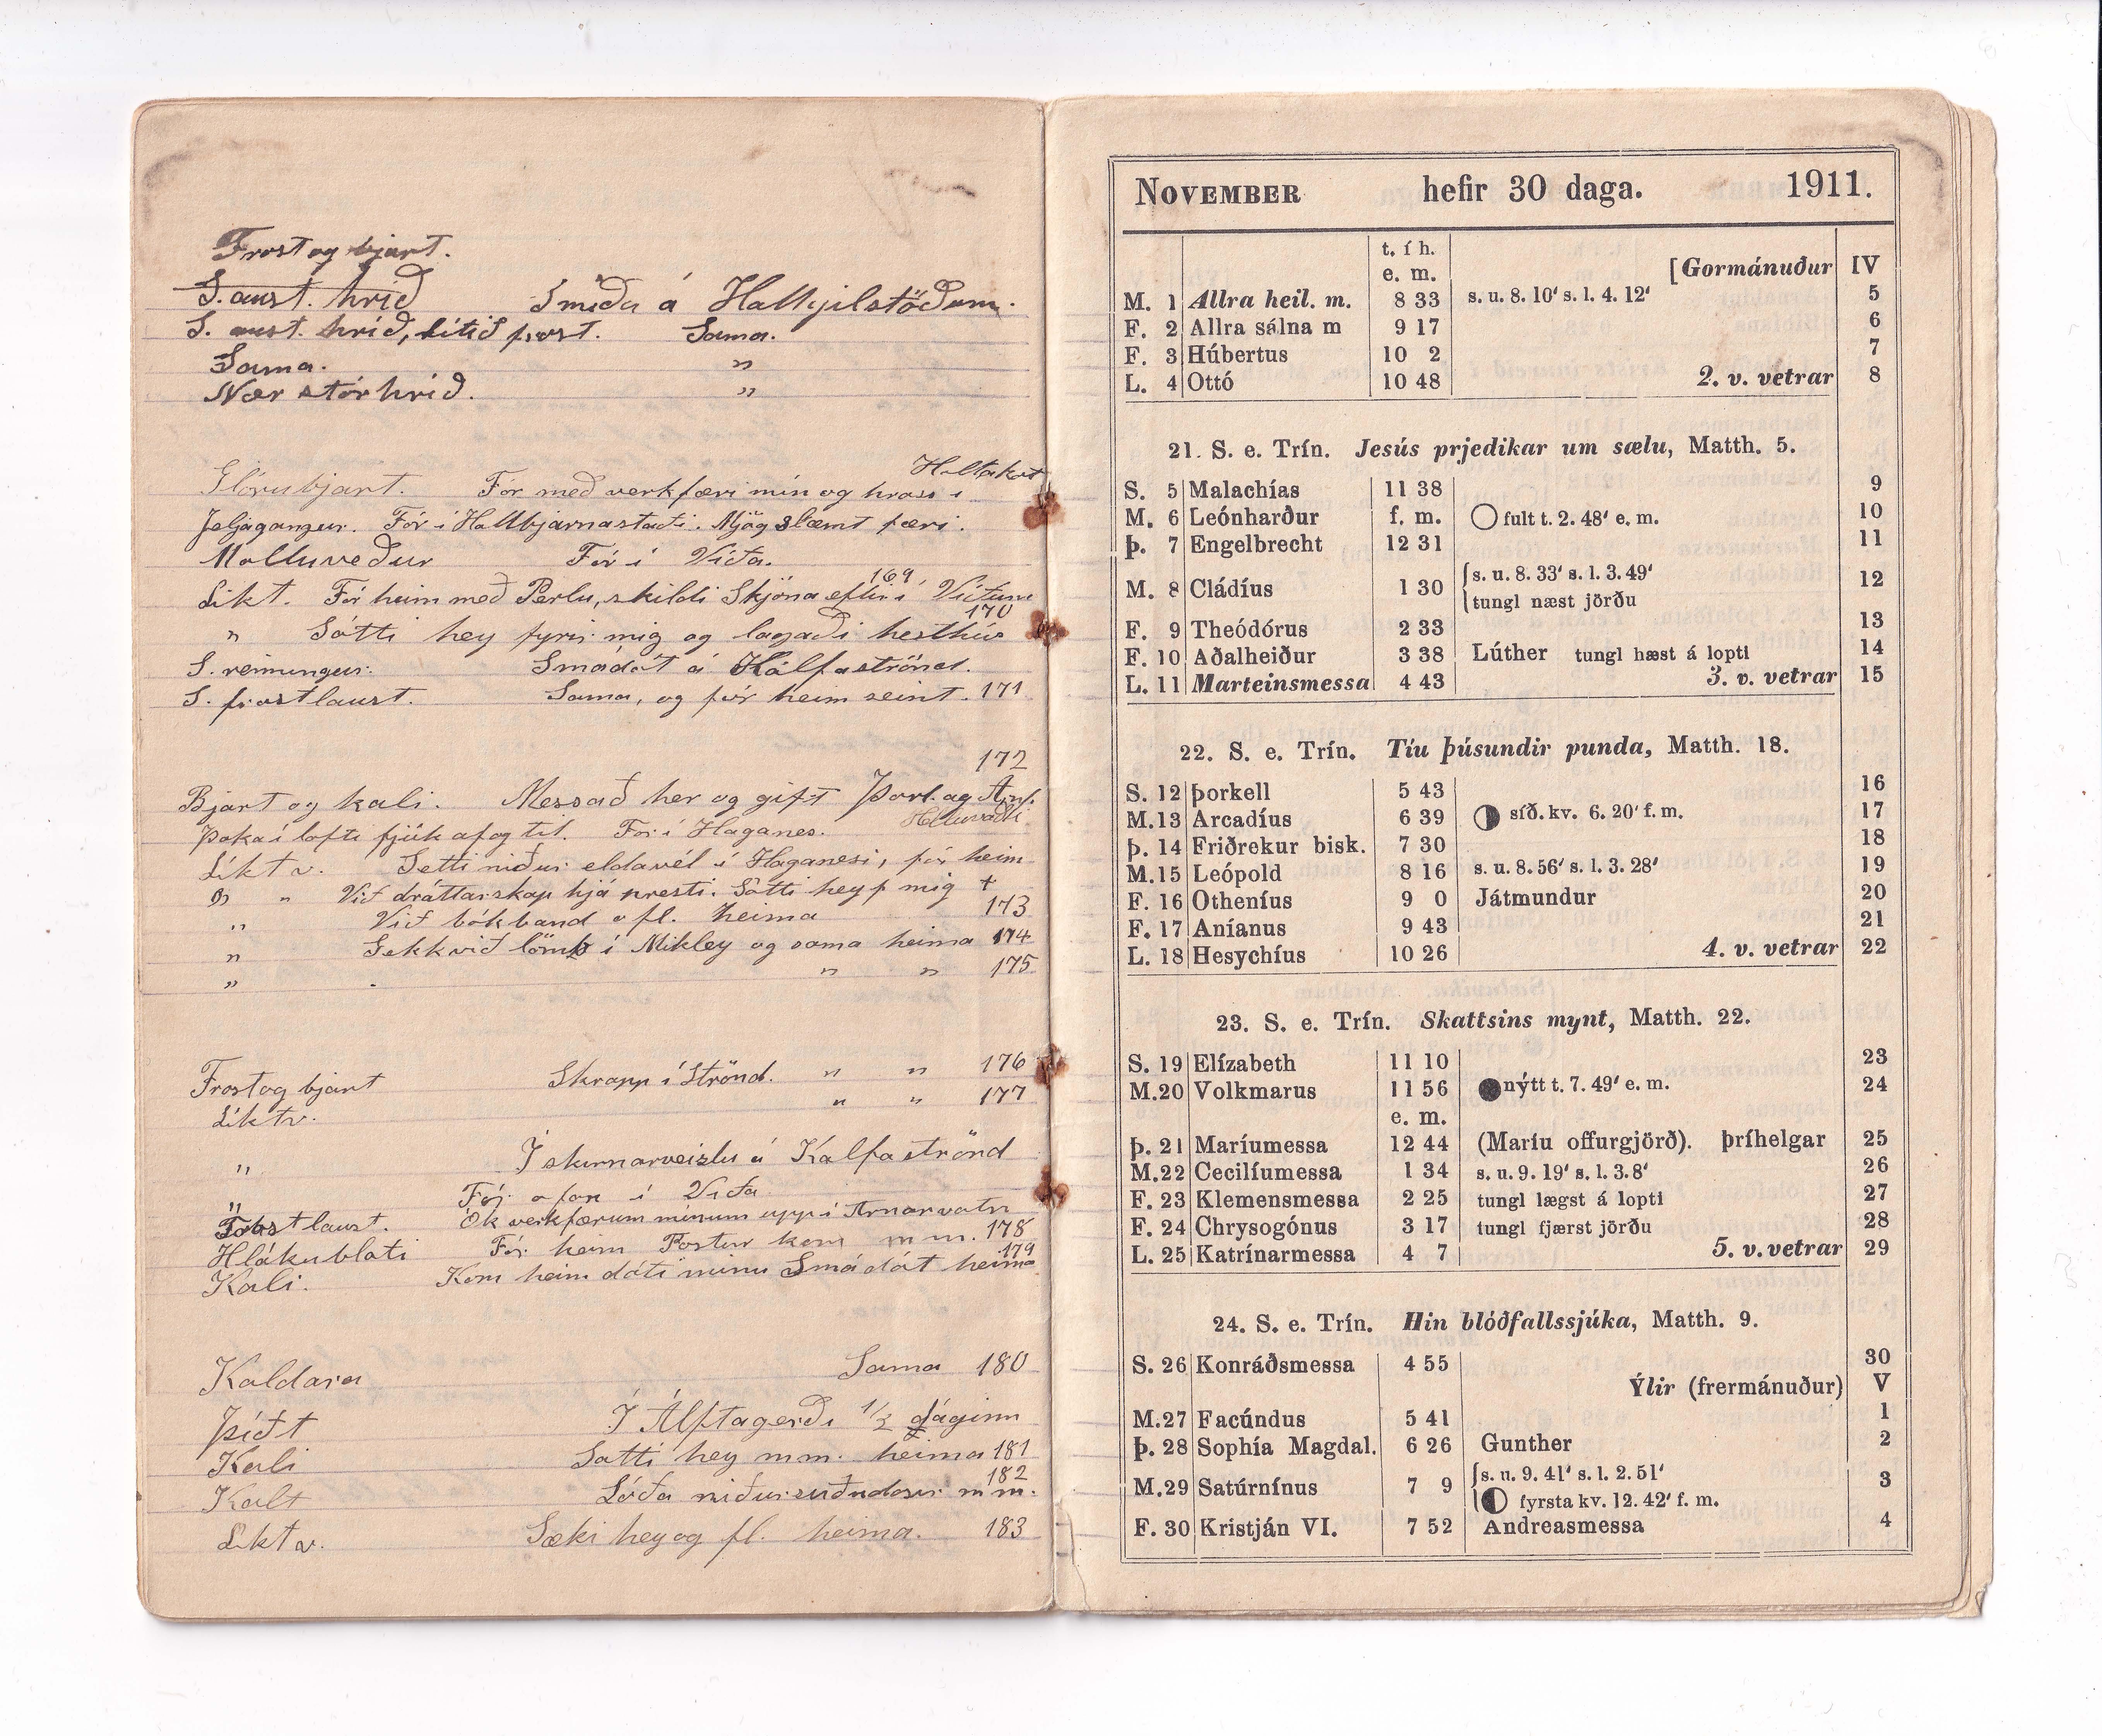 Frost og bjart.
S. aust. hríð Smíða á Hallgilstöðum.
S. aust. hríð, lítið frost. Sama.
Sama. "
Nær stórhríð. "
Holtakot
Glórubjart. Fór með verkfæri mín og hross í
Jeljagangur. Fór í Hallbjarnastaði. Mjög slæmt færi.
Molluveður Fór í Víða.
Líkt. Fór heim með Perlu, skildi Skjóna eftir í Víðum 169
" Sótti hey fyrir mig og lagaði hesthús 170
S. renningur. Smádót á Kálfaströnd.
S. frostlaust. Sama, og fór heim seint. 171
172
Bjart og kali. Messað her og gift Þorl. og Arnf.
Þoka í lofti fjúk af og til. Fór í Haganes. Helluvaði
Líkt v. Setti niður eldavél í Haganesi, fór heim
" " Við dráttarskap hjá presti. Sótti hey f mig +
" Við bókband o fl. heima 173
" Gekk við lömb í Mikley og sama heima 174
" " " 175
Frost og bjart Skrapp í Strönd. " " 176
Líkt v. " " 177
" Í skírnarveizlu á Kálfaströnd
" Fór ofan í Víða
Frostlaust. Ók verkfærum mínum upp í Arnarvatn
Hlákubloti Fór heim Postur kom m m. 178
Kali. Kom heim dóti mínu Smádót heima 179
Kaldara Sama 180
Þítt Í Álftagerði 1/2 daginn
Kali Sótti hey m m. heima 181
Kalt Lóða niðursuðudósir m m. 182
Líkt v. Sæki hey og fl. heima. 183
NOVEMBER hefir 30 daga. 1911.
t. í h.
e. m. [Gormánuður IV
M. 1 Allra heil. m. 8 33 s. u. 8. 10' s. l. 4. 12' 5
F. 2 Allra sálna m 9 17 6
F. 3 Húbertus 10 2 7
L. 4 Ottó 10 48 2. v. vetrar 8
21. S. e. Trín. Jesús prjedikar um sælu, Matth. 5.
S. 5 Malachías 11 38 9
M. 6 Leónharður f. m. fult t. 2. 48' e. m. 10
Þ. 7 Engelbrecht 12 31 11
M. 8 Cládíus 1 30 s. u. 8. 33' s. l. 3. 49' 12
tungl næst jörðu
F. 9 Theódórus 2 33 13
F. 10 Aðalheiður 3 38 Lúther tungl hæst á lopti 14
L. 11 Marteinsmessa 4 43 3. v. vetrar 15
22. S. e. Trín. Tíu þúsundir punda, Matth. 18.
S. 12 Þorkell 5 43 16
M. 13 Arcadíus 6 39 síð. kv. 6. 20' f. m. 17
Þ. 14 Friðrekur bisk. 7 30 18
M. 15 Leópold 8 16 s. u. 8. 56' s. l. 3. 28' 19
F. 16 Otheníus 9 0 Játmundur 20
F. 17 Aníanus 9 43 21
L. 18 Hesychíus 10 26 4. v. vetrar 22
23. S. e. Trín. Skattsins mynt, Matth. 22.
S. 19 Elízabeth 11 10 23
M. 20 Volkmarus 11 56 nýtt t. 7. 49' e. m. 24
e. m.
Þ. 21 Maríumessa 12 44 (Maríu offurgjörð). Þríhelgar 25
M. 22 Cecilíumessa 1 34 s. u. 9. 19' s. l. 3. 8' 26
F. 23 Klemensmessa 2 25 tungl lægst á lopti 27
F. 24 Chrysogónus 3 17 tungl fjærst jörðu 28
L. 25 Katrínarmessa 4 7 5. v. vetrar 29
24. S. e. Trín. Hin blóðfallssjúka, Matth. 9.
S. 26 Konráðsmessa 4 55 30
Ýlir (frermánuður) V
M. 27 Facúndus 5 41 1
Þ. 28 Sophía Magdal. 6 26 Gunther 2
M. 29 Satúrnínus 7 9 s. u. 9. 41' s. l. 2. 51' 3
fyrsta kv. 12. 42' f. m.
F. 30 Kristján VI. 7 52 Andreasmessa 4